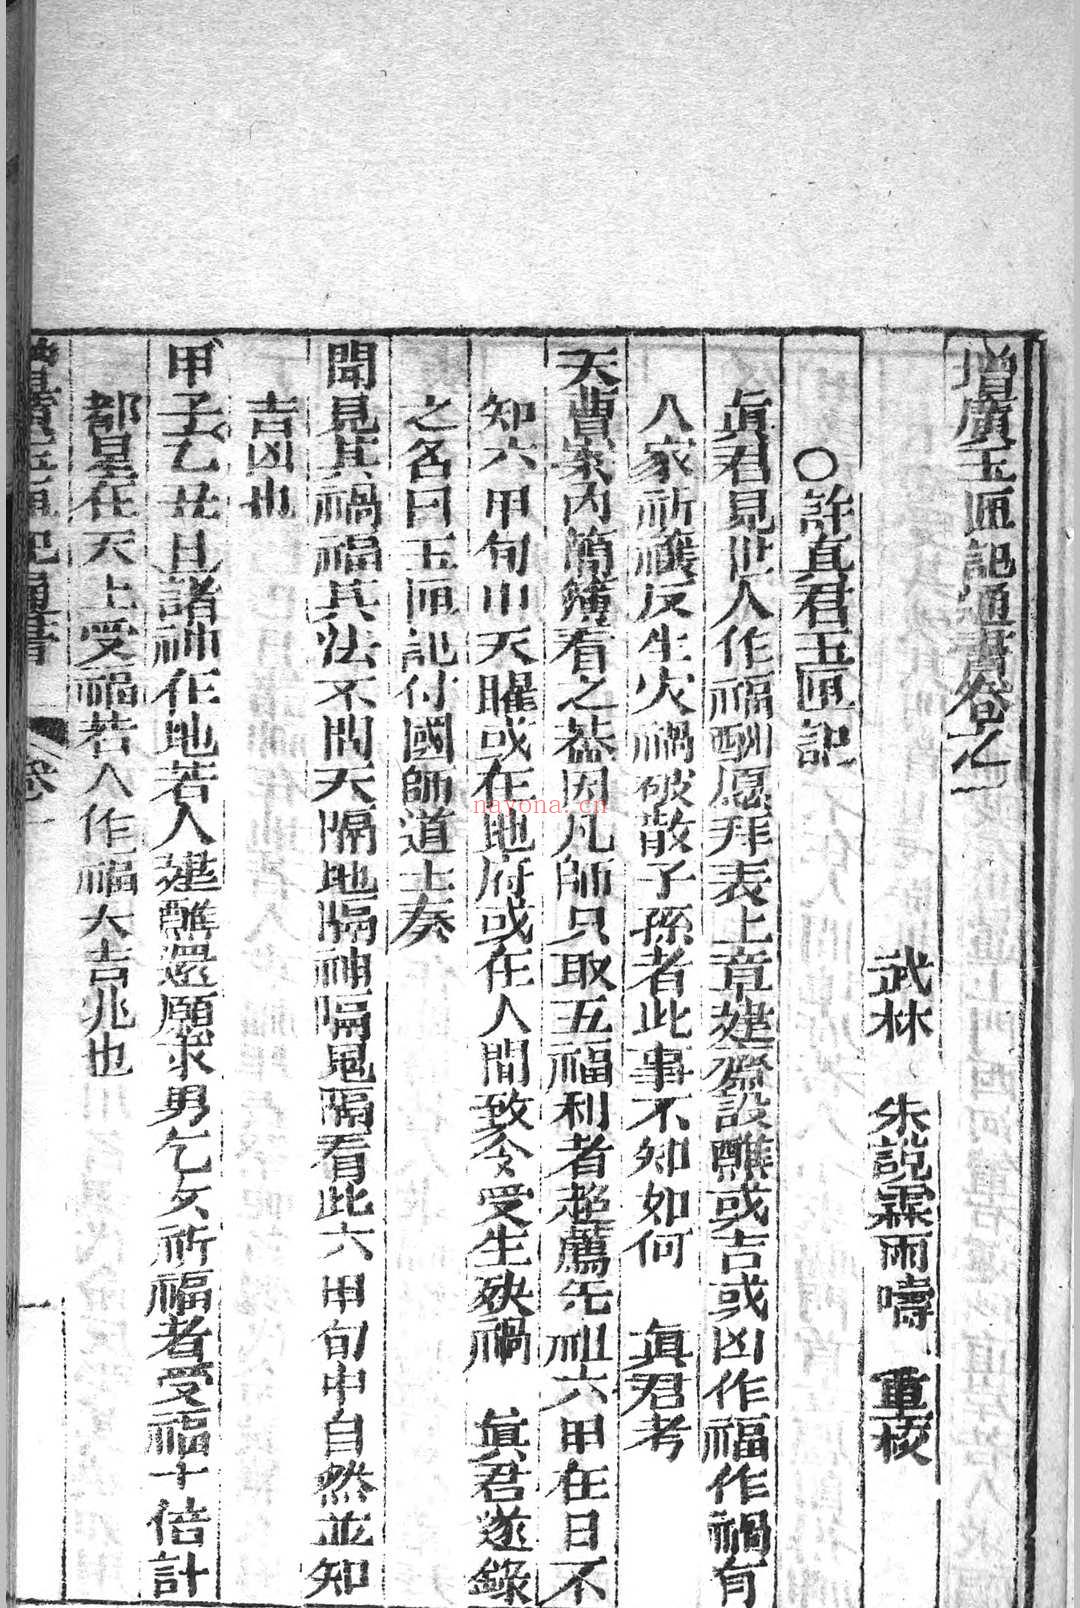 增廣玉匣記通書卷之一
武林 朱說霖雨嚋 重校
○許真君玉匣記
眞君見世人作福酬愿拜表上章建齋設醮或吉或凶作福作禍有
人家祈禳反生火禍破散子孫者此事不知如何 眞君考
天曹案內簡簿看之葢因凡師只取五福利者超薦先祖六甲在日不
知六甲旬中天曜或在地府或在人間致令受生殃禍 眞君遂錄
之名曰玉匣記付國師道士奏
聞見其禍福其法不問天隔地隔神隔鬼隔看此六甲旬中自然並知
吉凶也
甲子乙丑日諸神在地若人建醮還願求男乞女祈福者受福十倍計
都星在天上受福若人作福大吉兆也
增廣玉匣記通書
卷一
一
nayona.cn